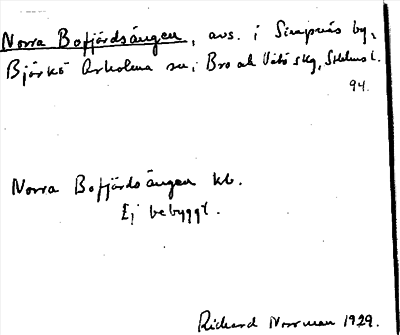 Norra Bofjärdsängen, avs. i Simpnäs by,
Björkö Arholma sn, Bro och Vätö skg, Sthlms l.
94.
Norra Bofjärdsängen kb.
Ej bebyggt.
Rickard Norrman 1929.